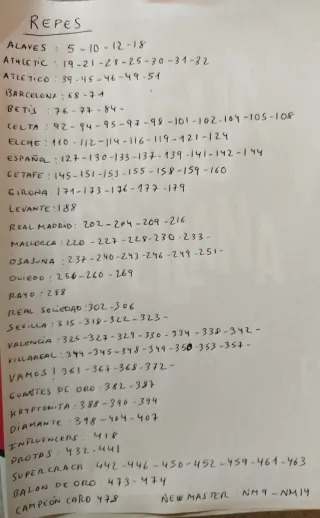 REPES
ALAVES : 5-10-12-18
ATHLETIC : 19-21-23-25-30-31-32
ATLETICO : 39-45-46-49-51
BARCELONA : 68-71
BETIS : 76-77-84-
CELTA : 92-94-95-97-98-101-102-104-105-108
ELCHE : 110-112-114-116-119-121-124
ESPAÑOL : 127-130-133-137-139-141-142-144
GETAFE : 145-151-153-155-158-159-160
GIRONA 171-173-176-177-179
LEVANTE : 188
REAL MADRID : 202-204-209-216
MALLORCA : 220-227-228-230-233-
OSASUNA : 237-240-243-246-249-251-
OVIEDO : 256-260-269
RAYO : 288
REAL SOCIEDAD : 302-306
SEVILLA : 315-318-322-323-
VALENCIA : 325-327-329-330-334-338-342-
VILLAREAL : 344-345-348-349-350-353-357-
VAMOS ! 361-367-368-372-
GUANTES DE ORO : 382-387
KRYPTONITA : 388-390-394
DIAMANTE : 398-404-407
INFLUENCERS : 418
PROTAS : 432-441
SUPERCRACK 442-446-450-452-459-461-463
BALON DE ORO : 473-474
CAMPEÓN CARD 478 NEW MASTER NM9-NM14